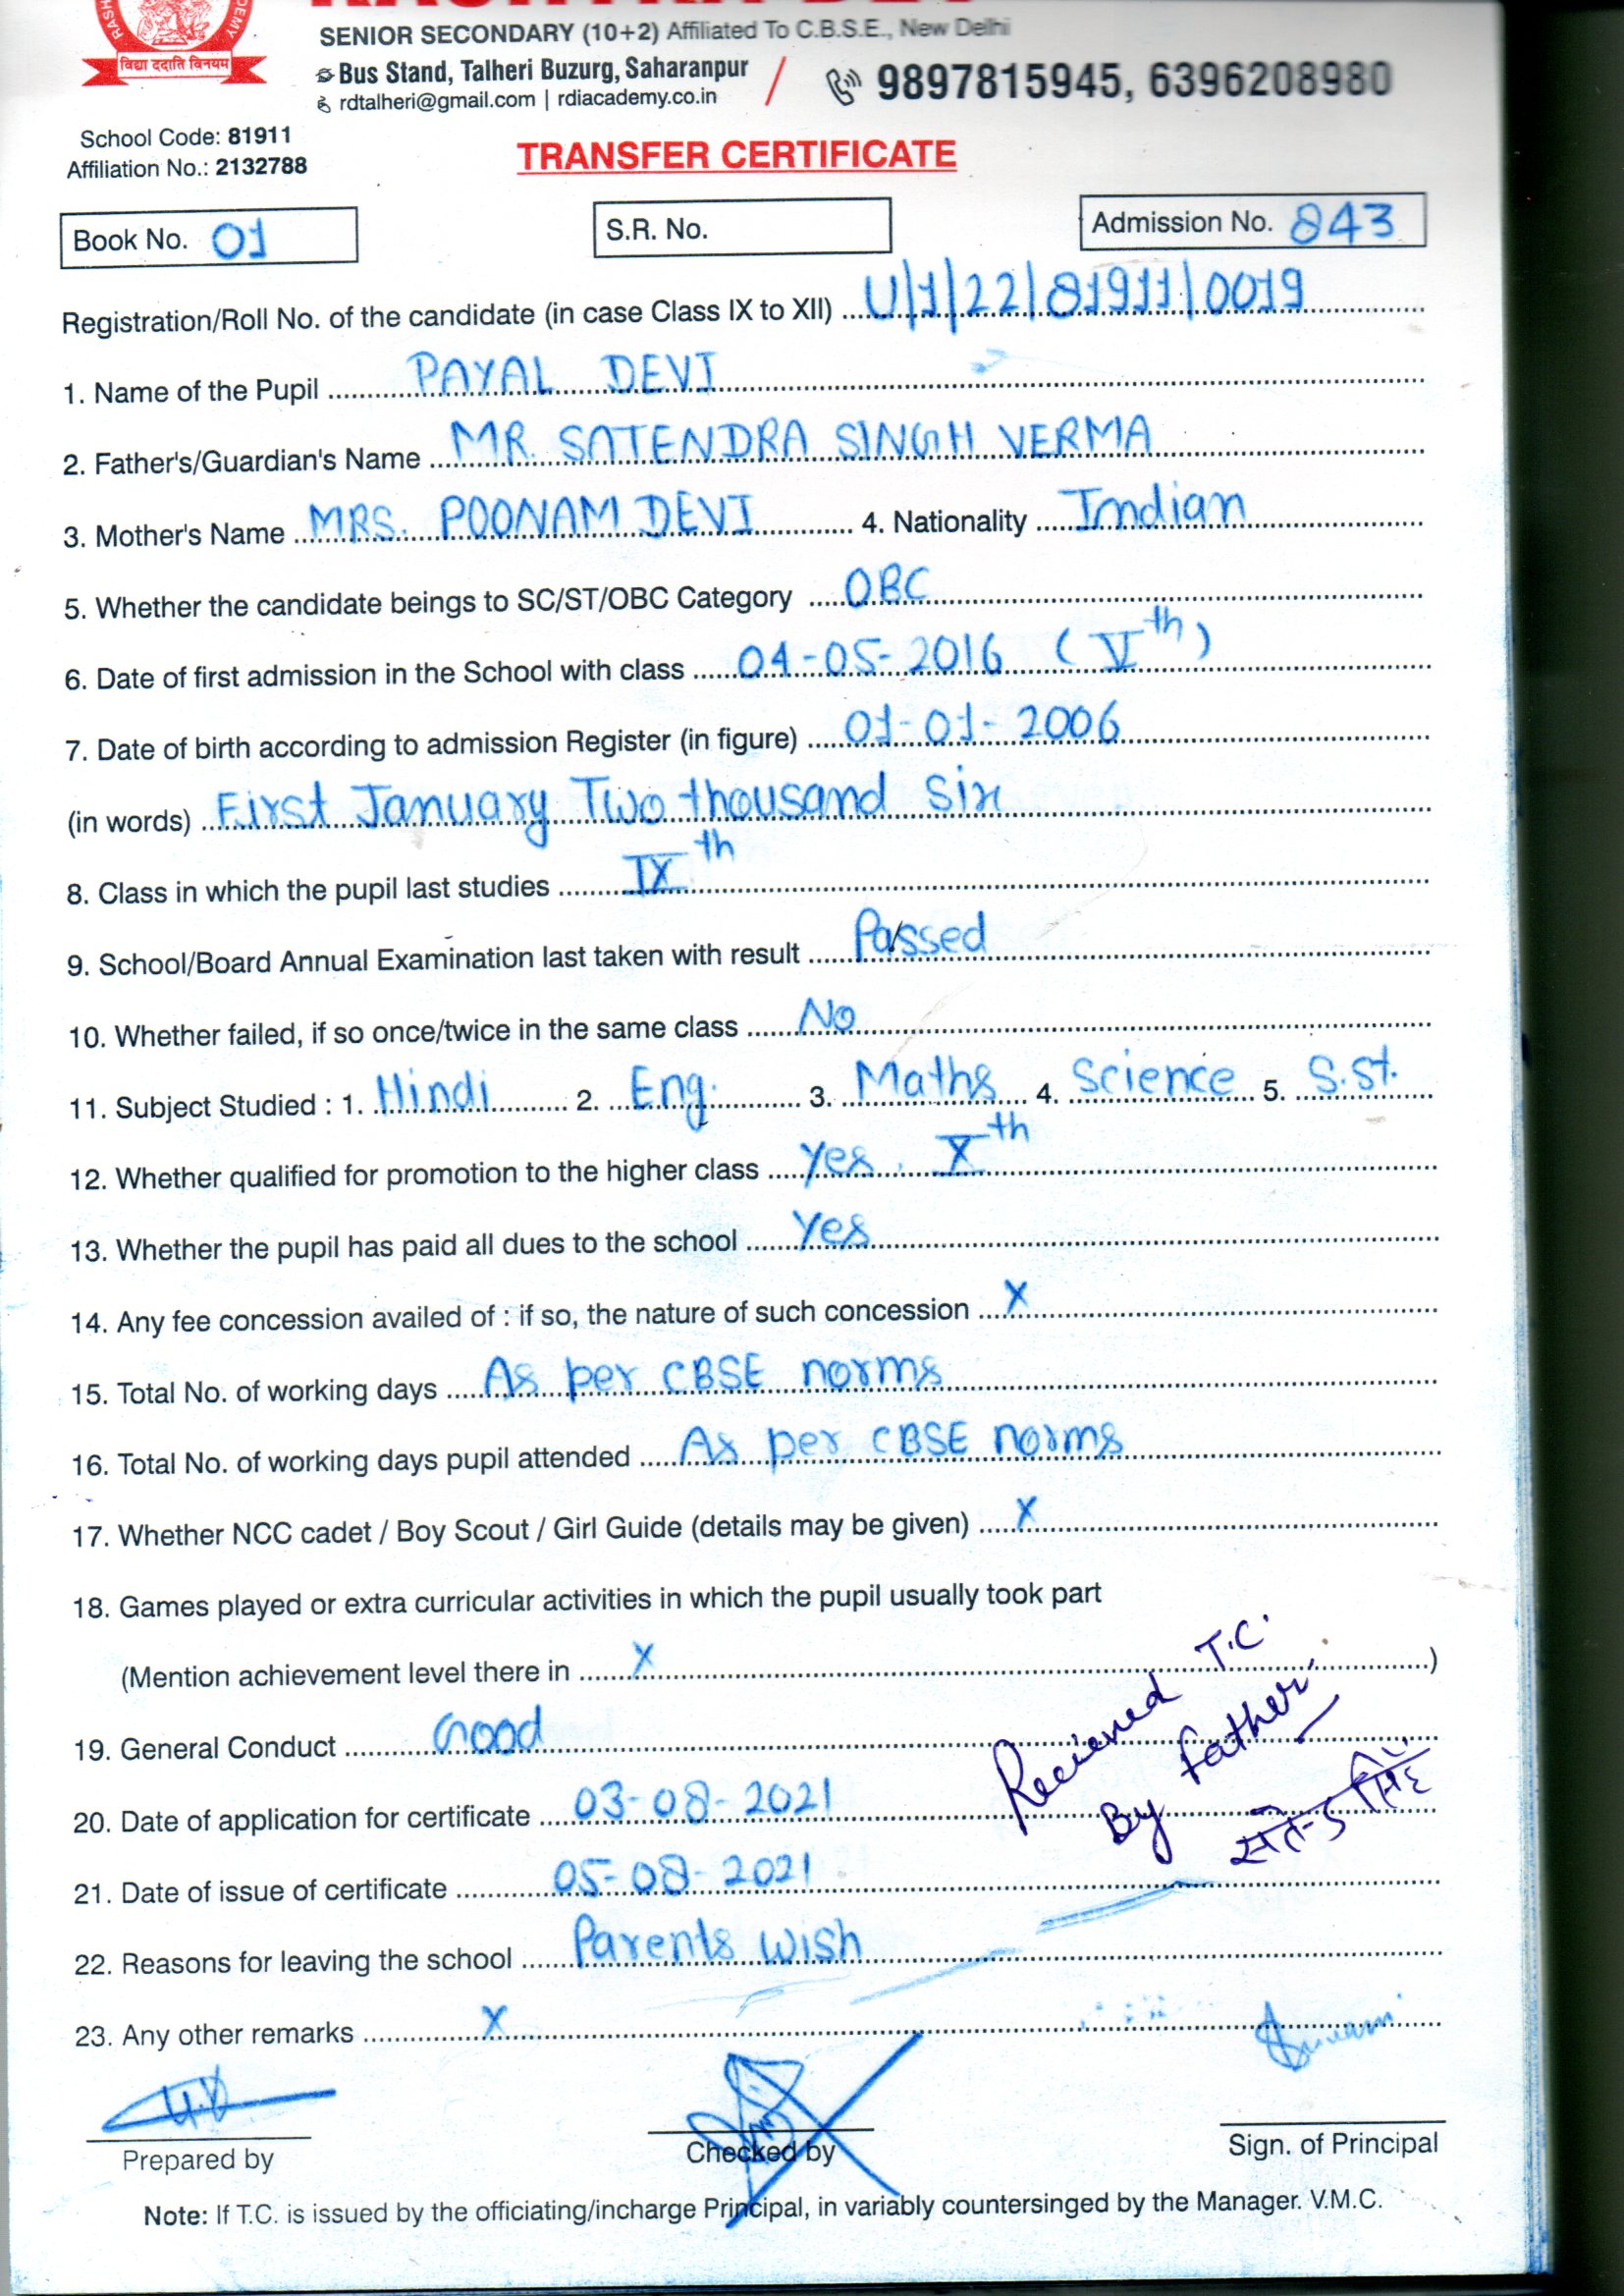 विद्या ददाति विनयम
SENIOR SECONDARY (10+2) Affiliated To C.B.S.E., New Delhi
Bus Stand, Talheri Buzurg, Saharanpur
rdtalheri@gmail.com | rdiacademy.co.in
9897815945, 6396208980
School Code: 81911
Affiliation No.: 2132788
TRANSFER CERTIFICATE
Book No. 01 S.R. No. Admission No. 843
Registration/Roll No. of the candidate (in case Class IX to XII) U/1/22/81911/0019
1. Name of the Pupil PAYAL DEVI
2. Father's/Guardian's Name MR. SATENDRA SINGH VERMA
3. Mother's Name MRS. POONAM DEVI 4. Nationality Indian
5. Whether the candidate beings to SC/ST/OBC Category OBC
6. Date of first admission in the School with class 04-05-2016 (Vth)
7. Date of birth according to admission Register (in figure) 01-01-2006
(in words) First January Two thousand Six
8. Class in which the pupil last studies IXth
9. School/Board Annual Examination last taken with result Passed
10. Whether failed, if so once/twice in the same class No
11. Subject Studied : 1. Hindi 2. Eng. 3. Maths 4. Science 5. S.St.
12. Whether qualified for promotion to the higher class Yes. Xth
13. Whether the pupil has paid all dues to the school Yes
14. Any fee concession availed of : if so, the nature of such concession X
15. Total No. of working days As per CBSE norms
16. Total No. of working days pupil attended As per CBSE norms
17. Whether NCC cadet / Boy Scout / Girl Guide (details may be given) X
18. Games played or extra curricular activities in which the pupil usually took part
(Mention achievement level there in X )
19. General Conduct Good
Recieved T.C.
By father
20. Date of application for certificate 03-08-2021
21. Date of issue of certificate 05-08-2021
22. Reasons for leaving the school Parents wish
23. Any other remarks X
Prepared by Checked by Sign. of Principal
Note: If T.C. is issued by the officiating/incharge Principal, in variably countersinged by the Manager. V.M.C.